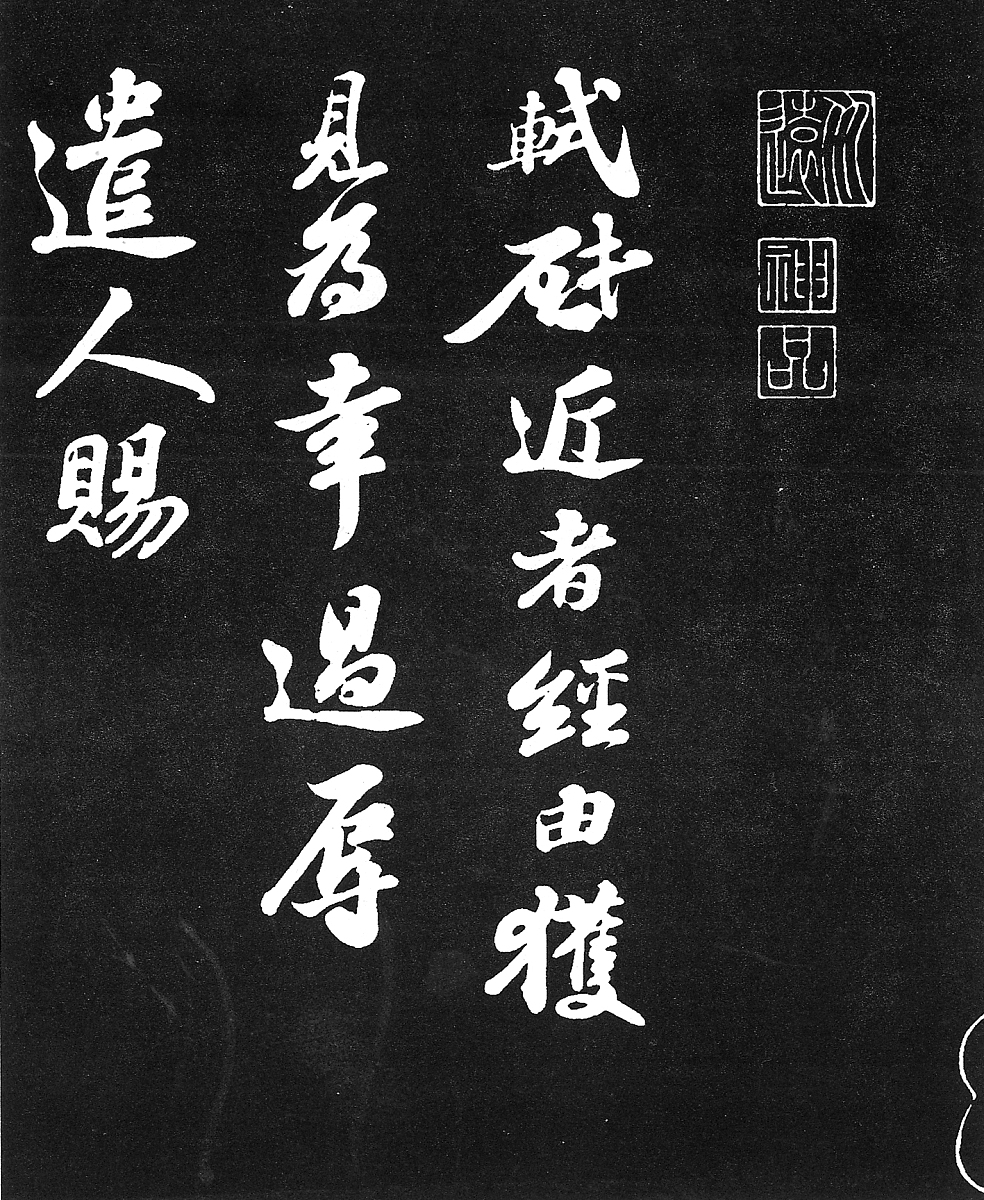 神
品
軾啟近者經由獲
見為幸過辱
遣人賜